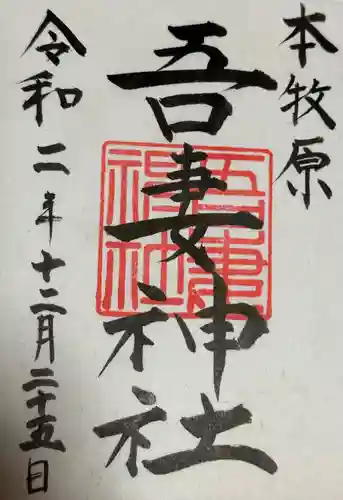 本牧原
吾妻神社
令和二年十二月二十五日
吾妻
神社